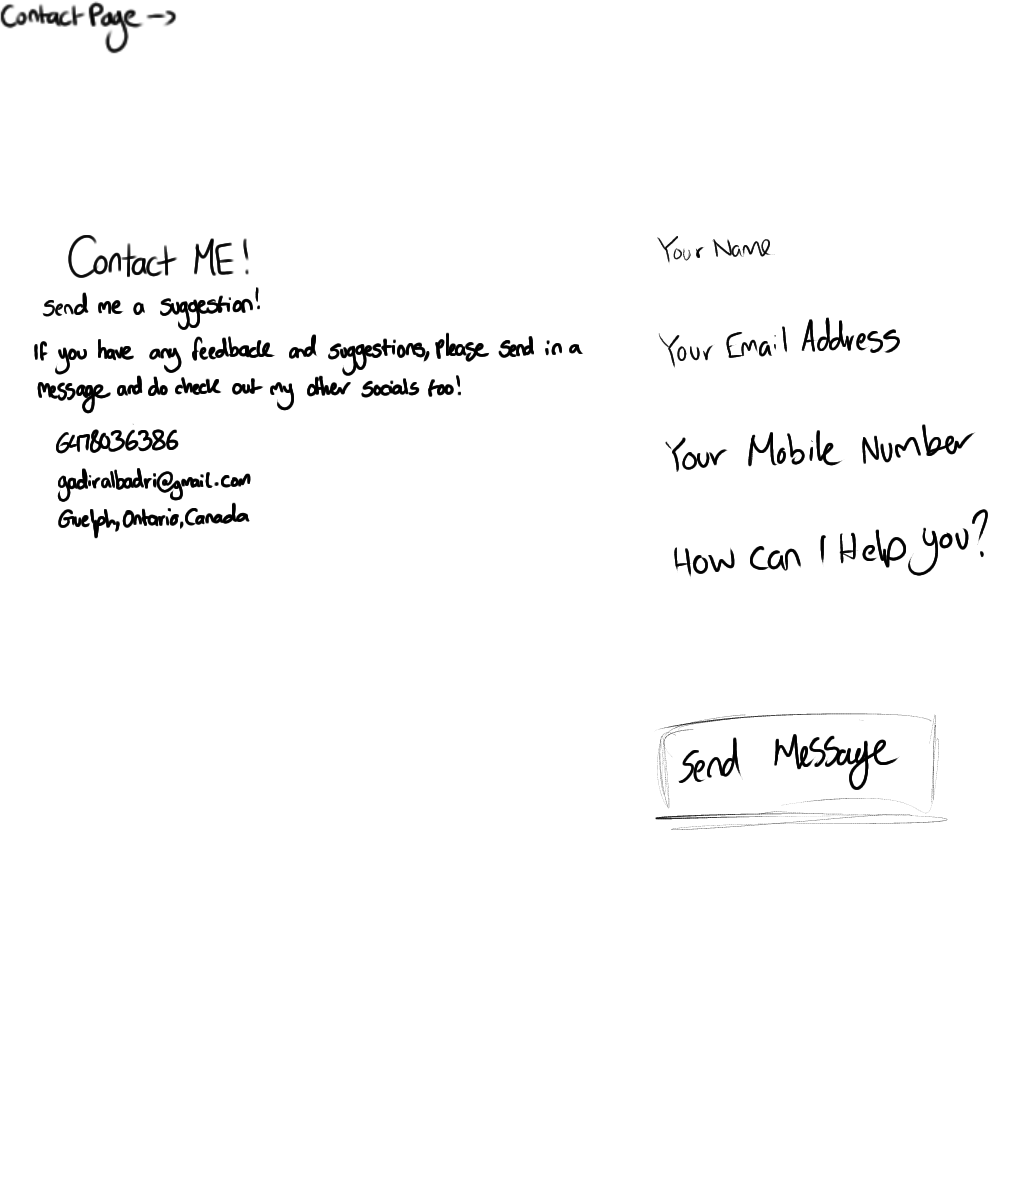 Contact Page →
Contact ME!
Send me a suggestion!
If you have any feedback and suggestions, Please send in a
message and do check out my other socials too!
6478036386
gadiralbadri@gmail.com
Guelph, Ontario, Canada
Your Name
Your Email Address
Your Mobile Number
How can I Help you?
Send Message